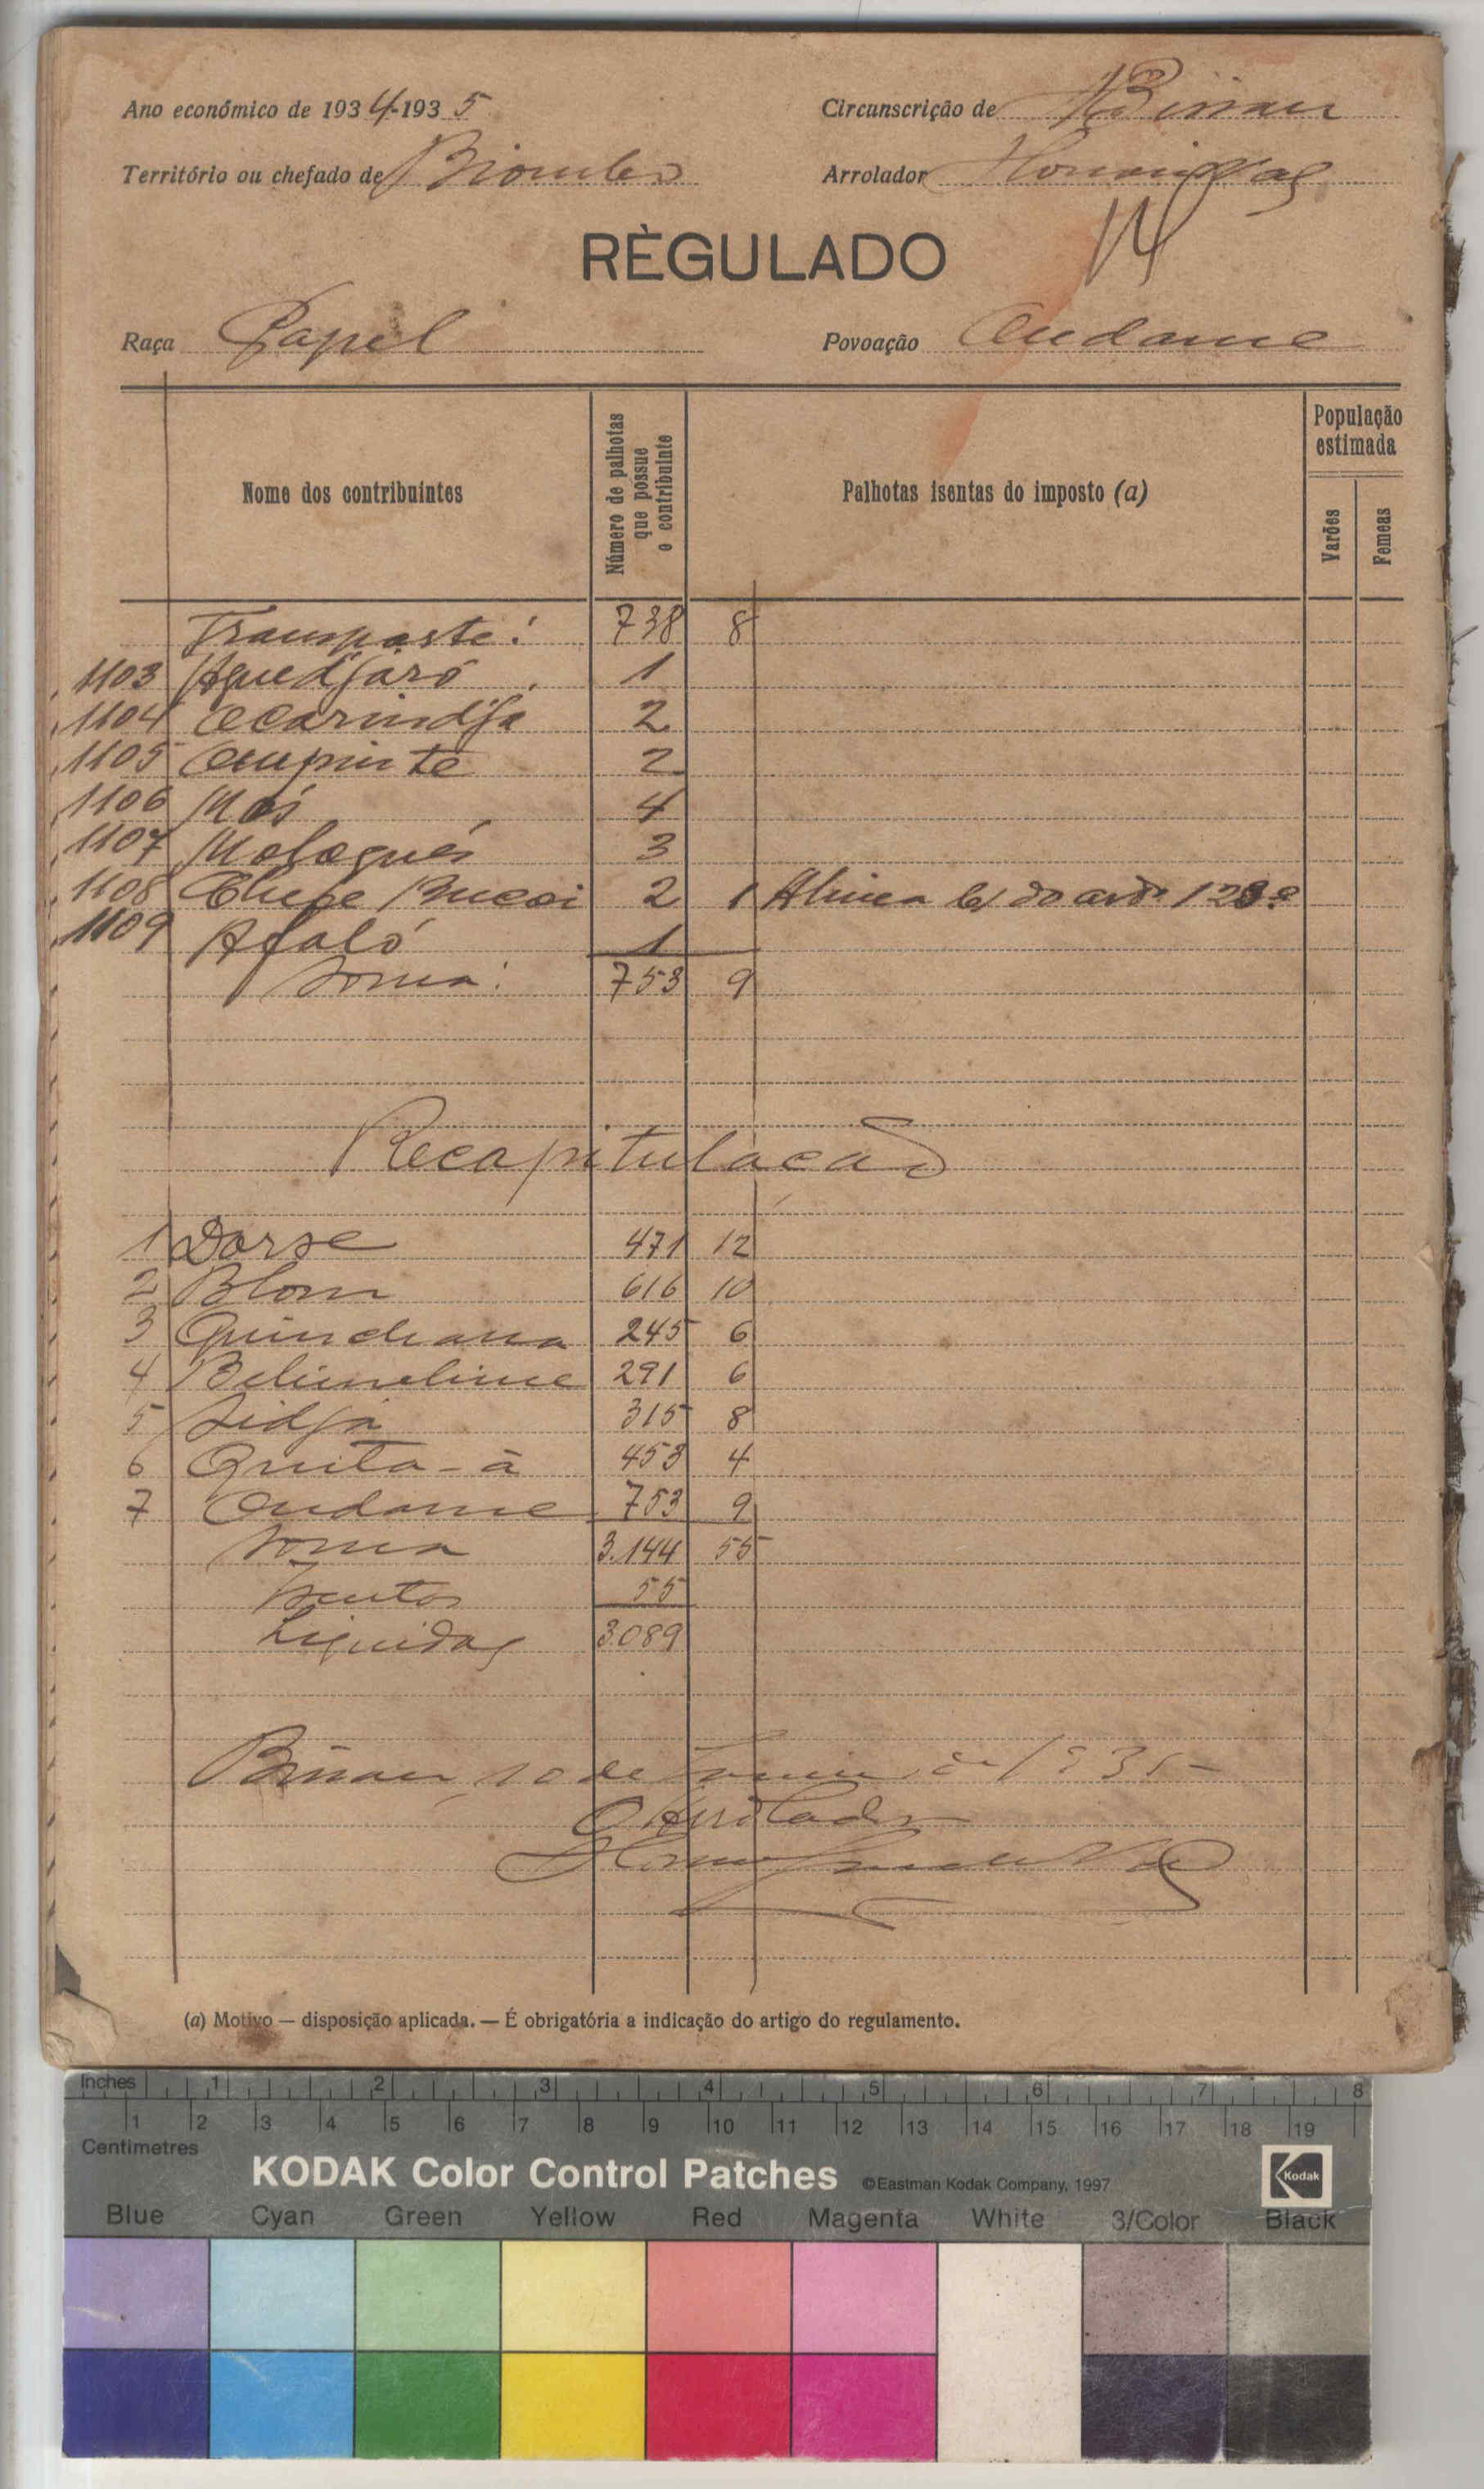 Ano económico de 1934-1935 Circunscrição de Bissau
Território ou chefado de Biombo Arrolador
RÈGULADO
Raça Papel Povoação Ondame
Nome dos contribuintes
Número de palhotas que possue o contribuinte
Palhotas isentas do imposto (a)
População estimada
Varões
Femeas
Transporte: 738 8
1103 Aguedjaró 1
1104 Ocarindja 2
1105 Oupinte 2
1106 Mós 4
1107 Malagués 3
1108 2 1 Alinea b) do artº 128º
1109 Afaló 1
Soma: 753 9
Recapitulacao
1 Dorse 471 12
2 Blom 616 10
3 245 6
4 291 6
5 Sidjá 315 8
6 Quita-á 453 4
7 Ondame 753 9
Soma 3.144 55
Isentos 55
Liquidas 3.089
Bissau, 10 de de 1935
O Arrolador
(a) Motivo — disposição aplicada. — É obrigatória a indicação do artigo do regulamento.
Inches 1 2 3 4 5 6 7 8
1 2 3 4 5 6 7 8 9 10 11 12 13 14 15 16 17 18 19
Centimetres
KODAK Color Control Patches ©Eastman Kodak Company, 1997 Kodak
Blue Cyan Green Yellow Red Magenta White 3/Color Black